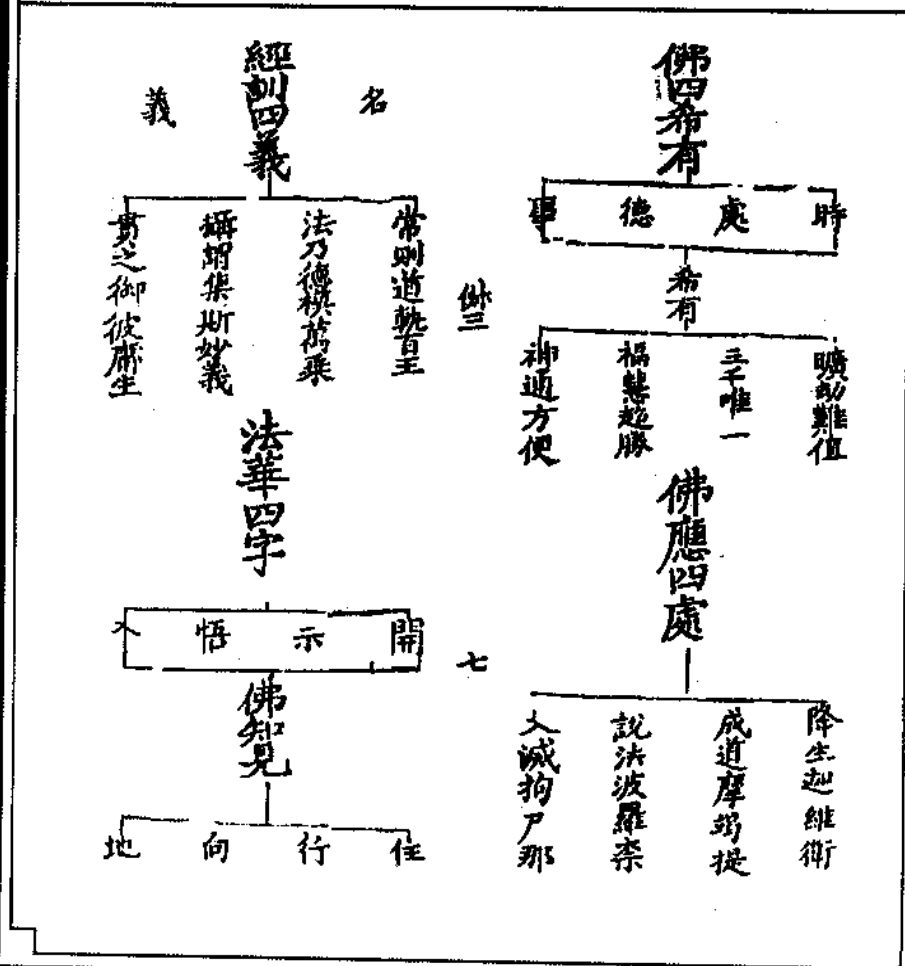 佛四希有
時
處
德
事
希有
曠劫難值
三千唯一
福慧超勝
神通方便
佛應四處
降生迦維衛
成道摩竭提
說法波羅柰
入滅拘尸那
三
七
名
經訓四義
義
常則道軌百王
法乃德模萬乘
攝謂集斯妙義
貫之御彼庸生
法華四字
開
示
悟
入
佛知見
住
行
向
地